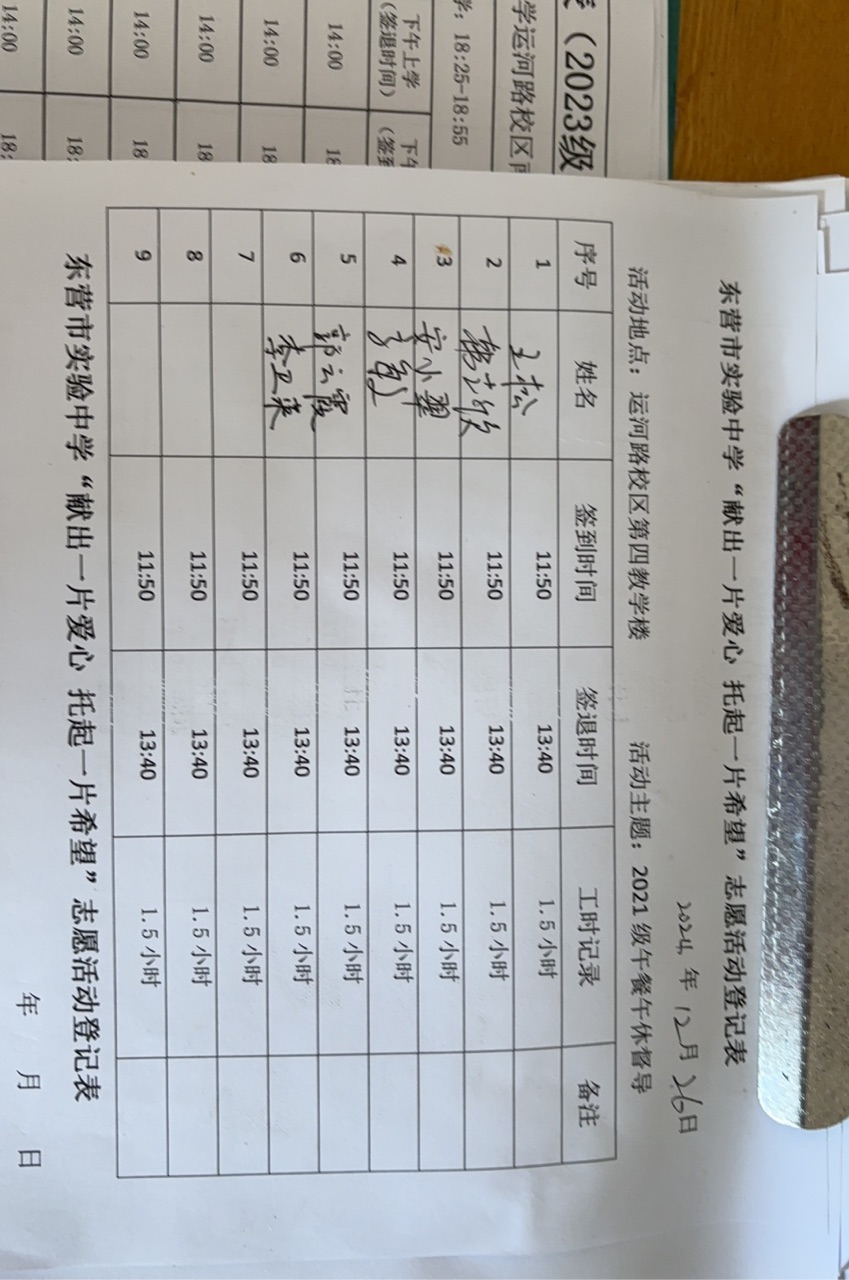 （2023级
学运河路校区
学：18:25-18:55
下午上学
（签退时间）
14:00
14:00 18
14:00 18
14:00 18
14:00 18:
14:00 18:
东营市实验中学“献出一片爱心 托起一片希望”志愿活动登记表
2024 年 12 月 26 日
活动地点：运河路校区第四教学楼 活动主题：2021 级午餐午休督导
序号 姓名 签到时间 签退时间 工时记录 备注
1 王松 11:50 13:40 1.5 小时
2 11:50 13:40 1.5 小时
3 安小翠 11:50 13:40 1.5 小时
4 11:50 13:40 1.5 小时
5 郭云霞 11:50 13:40 1.5 小时
6 李卫来 11:50 13:40 1.5 小时
7 11:50 13:40 1.5 小时
8 11:50 13:40 1.5 小时
9 11:50 13:40 1.5 小时
东营市实验中学“献出一片爱心 托起一片希望”志愿活动登记表
年 月 日